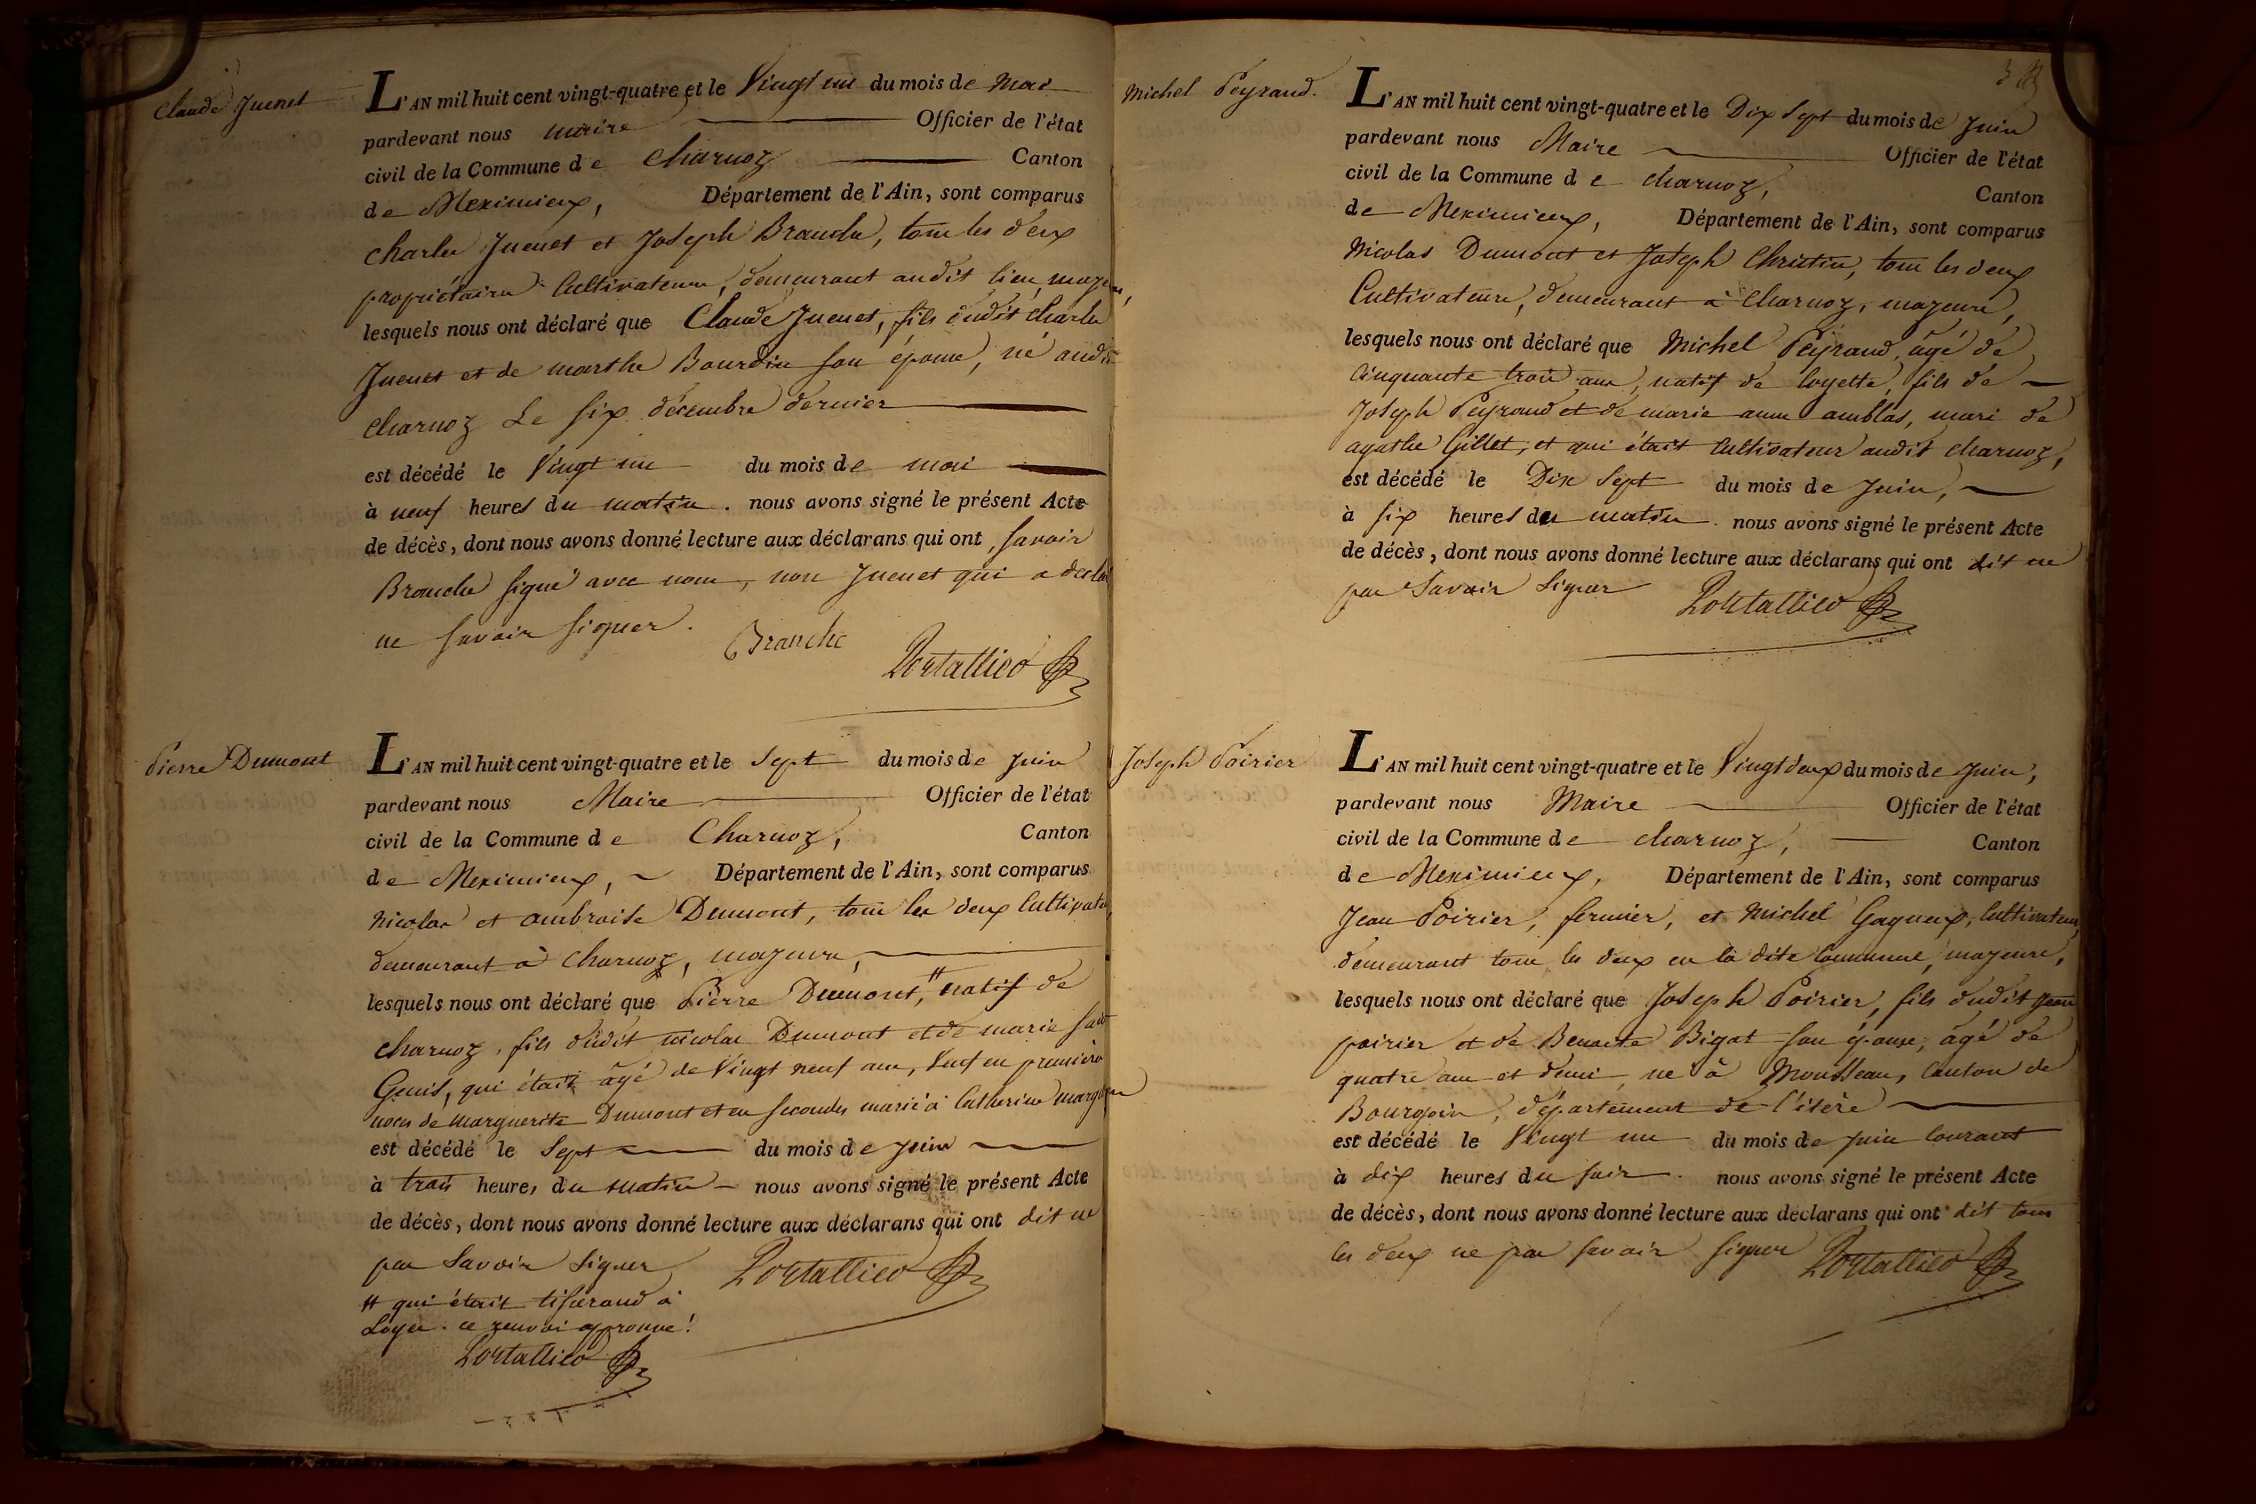 Claude Juenet
L'AN mil huit cent vingt-quatre et le Vingt un du mois de Mai
pardevant nous maire Officier de l'état
civil de la Commune de Charnoz Canton
de Meximieux, Département de l'Ain, sont comparus
Charles Juenet et Joseph Branche, tous les deux
propriétaires Cultivateurs, demeurant audit lieu, majeurs,
lesquels nous ont déclaré que Claude Juenet, fils dudit Charles
Juenet et de marthe Bourdin son épouse, né audit
Charnoz Le six décembre dernier
est décédé le Vingt un du mois de mai
à neuf heures du matin. nous avons signé le présent Acte
de décès, dont nous avons donné lecture aux déclarans qui ont, savoir
Branche signé avec nous, non Juenet qui a déclaré
ne savoir signer.
Branche
Portallier
Pierre Dumont
L'AN mil huit cent vingt-quatre et le Sept du mois de juin
pardevant nous Maire Officier de l'état
civil de la Commune de Charnoz, Canton
de Meximieux, Département de l'Ain, sont comparus
Nicolas et ambroise Dumont, tous les deux Cultivateurs
demeurant à Charnoz, majeurs,
lesquels nous ont déclaré que Pierre Dumont, # natif de
Charnoz, fils dudit nicolas Dumont et de marie
qui était âgé de Vingt neuf ans, Veuf en premières
noces de Marguerite Dumont et en secondes marié à Catherine
est décédé le Sept du mois de juin
à trois heures du matin nous avons signé le présent Acte
de décès, dont nous avons donné lecture aux déclarans qui ont dit ne
pas Savoir Signer Portallier
# qui était tisserand à
Loyes. ce renvoi approuvé!
Portallier
Michel Peyraud.
L'AN mil huit cent vingt-quatre et le Dix Sept du mois de Juin
pardevant nous Maire Officier de l'état
civil de la Commune de charnoz, Canton
de Meximieux, Département de l'Ain, sont comparus
Nicolas Dumont et Joseph Christin, tous les deux
Cultivateurs, demeurant à Charnoz, majeurs,
lesquels nous ont déclaré que Michel Peyraud, âgé de
Cinquante trois ans, natif de loyette, fils de
Joseph Peyraud et de marie anne amblas, mari de
agathe Gillet, et qui était Cultivateur audit charnoz,
est décédé le Dix Sept du mois de Juin,
à six heures du matin. nous avons signé le présent Acte
de décès, dont nous avons donné lecture aux déclarans qui ont dit ne
pas Savoir Signer Portallier
Joseph Poirier
L'AN mil huit cent vingt-quatre et le Vingt deux du mois de Juin,
pardevant nous Maire Officier de l'état
civil de la Commune de charnoz, Canton
de Meximieux, Département de l'Ain, sont comparus
Jean Poirier, fermier, et Michel Gagneux, Cultivateur,
demeurant tous les deux en la dite Commune, majeurs,
lesquels nous ont déclaré que Joseph Poirier, fils dudit Jean
poirier et de Benoite Bigat son épouse, âgé de
quatre ans et demi, né à Mousseau, Canton de
Bourgoin, département de l'isère
est décédé le Vingt un du mois de juin Courant
à dix heures du soir. nous avons signé le présent Acte
de décès, dont nous avons donné lecture aux déclarans qui ont dit tous
les deux ne pas savoir signer Portallier